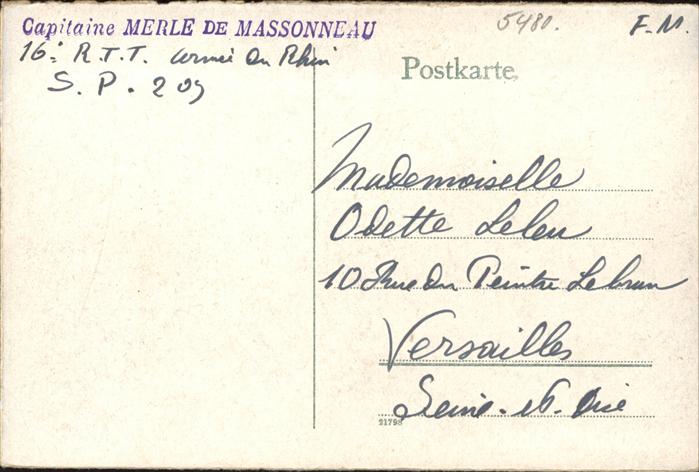 Capitaine MERLE DE MASSONNEAU
5480.
F.M.
16e R.T.T. armée du Rhin
S. P. 209
Postkarte.
Mademoiselle
Odette Leleu
10 Rue du Peintre Lebrun
Versailles
Seine-et-Oise
21798